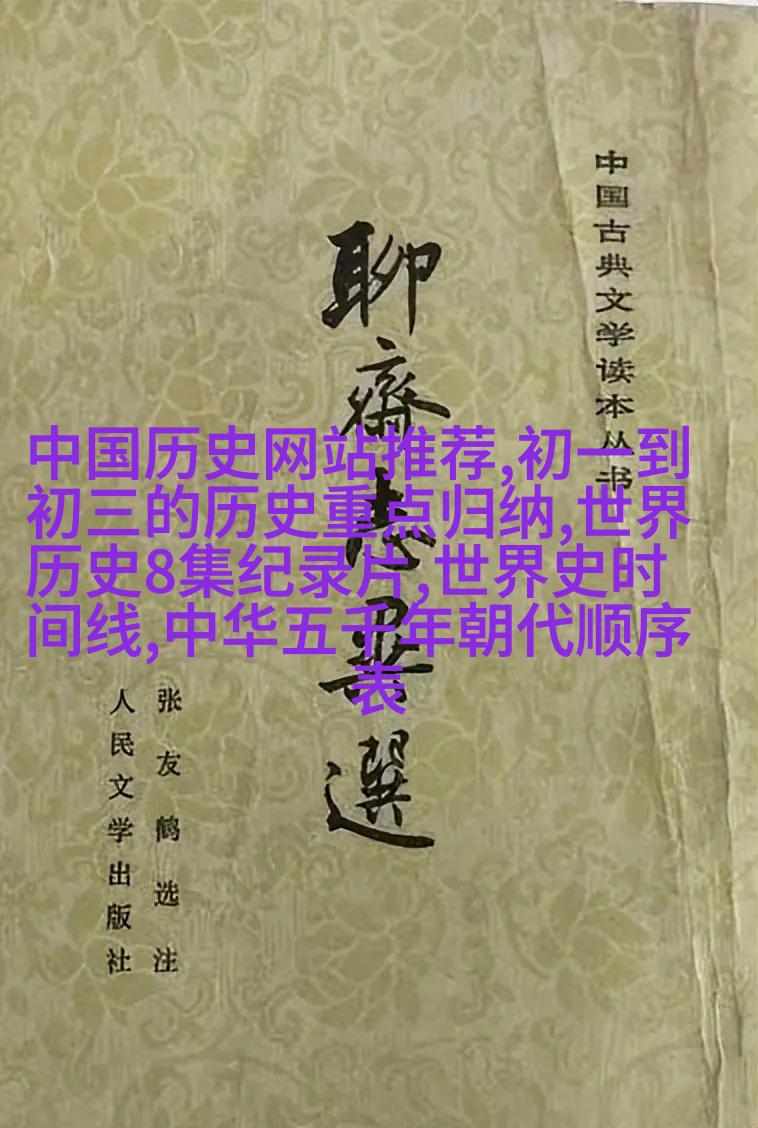 中国古典文学读本丛书
聊斋志异选
张友鹤选注
人民文学出版社
中国历史网站推荐,初一到
初三的历史重点归纳,世界
历史8集纪录片,世界史时
间线,中华五千年朝代顺序
表